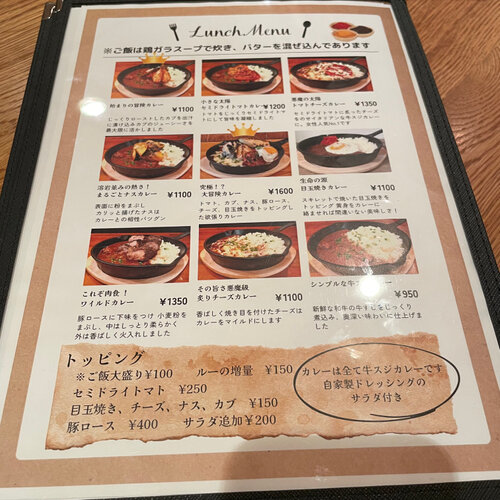 Lunch Menu
※ご飯は鶏ガラスープで炊き、バターを混ぜ込んであります
始まりの冒険カレー ¥1100
じっくりローストしたカブを出汁に漬け込みカブのジューシーさを
最大限に活かしました
小さな太陽
セミドライトマトカレー ¥1200
トマトをじっくりセミドライトマトにして旨味を凝縮しました
悪魔の太陽
トマトチーズカレー ¥1350
セミドライトマトに炙ったチーズをのせイタリアンな牛スジカレーに。女性人気No.1です
溶岩並みの熱さ！
まるごとナスカレー ¥1100
表面に粉をまぶし
カリッと揚げたナスは
カレーとの相性バツグン
究極！？
大冒険カレー ¥1600
トマト、カブ、ナス、豚ロース、
チーズ、目玉焼きをトッピングし
た欲張りカレー
生命の源
目玉焼きカレー ¥1100
スキレットで焼いた目玉焼きを
トッピング 黄身をカレーに
絡ませれば間違いない美味しさ！
これぞ肉食！
ワイルドカレー ¥1350
豚ロースに下味をつけ 小麦粉を
まぶし、中はしっとり柔らかく
外は香ばしく火入れしました
その旨さ悪魔級
炙りチーズカレー ¥1100
香ばしく焼き目を付けたチーズは
カレーをマイルドにします
シンプルな牛 ¥950
新鮮な和牛の牛すじをじっくり
煮込み、奥深い味わいに仕上げました
トッピング
※ご飯大盛り¥100 ルーの増量 ¥150
セミドライトマト ¥250
目玉焼き、チーズ、ナス、カブ ¥150
豚ロース ¥400 サラダ追加¥200
カレーは全て牛スジカレーです
自家製ドレッシングの
サラダ付き